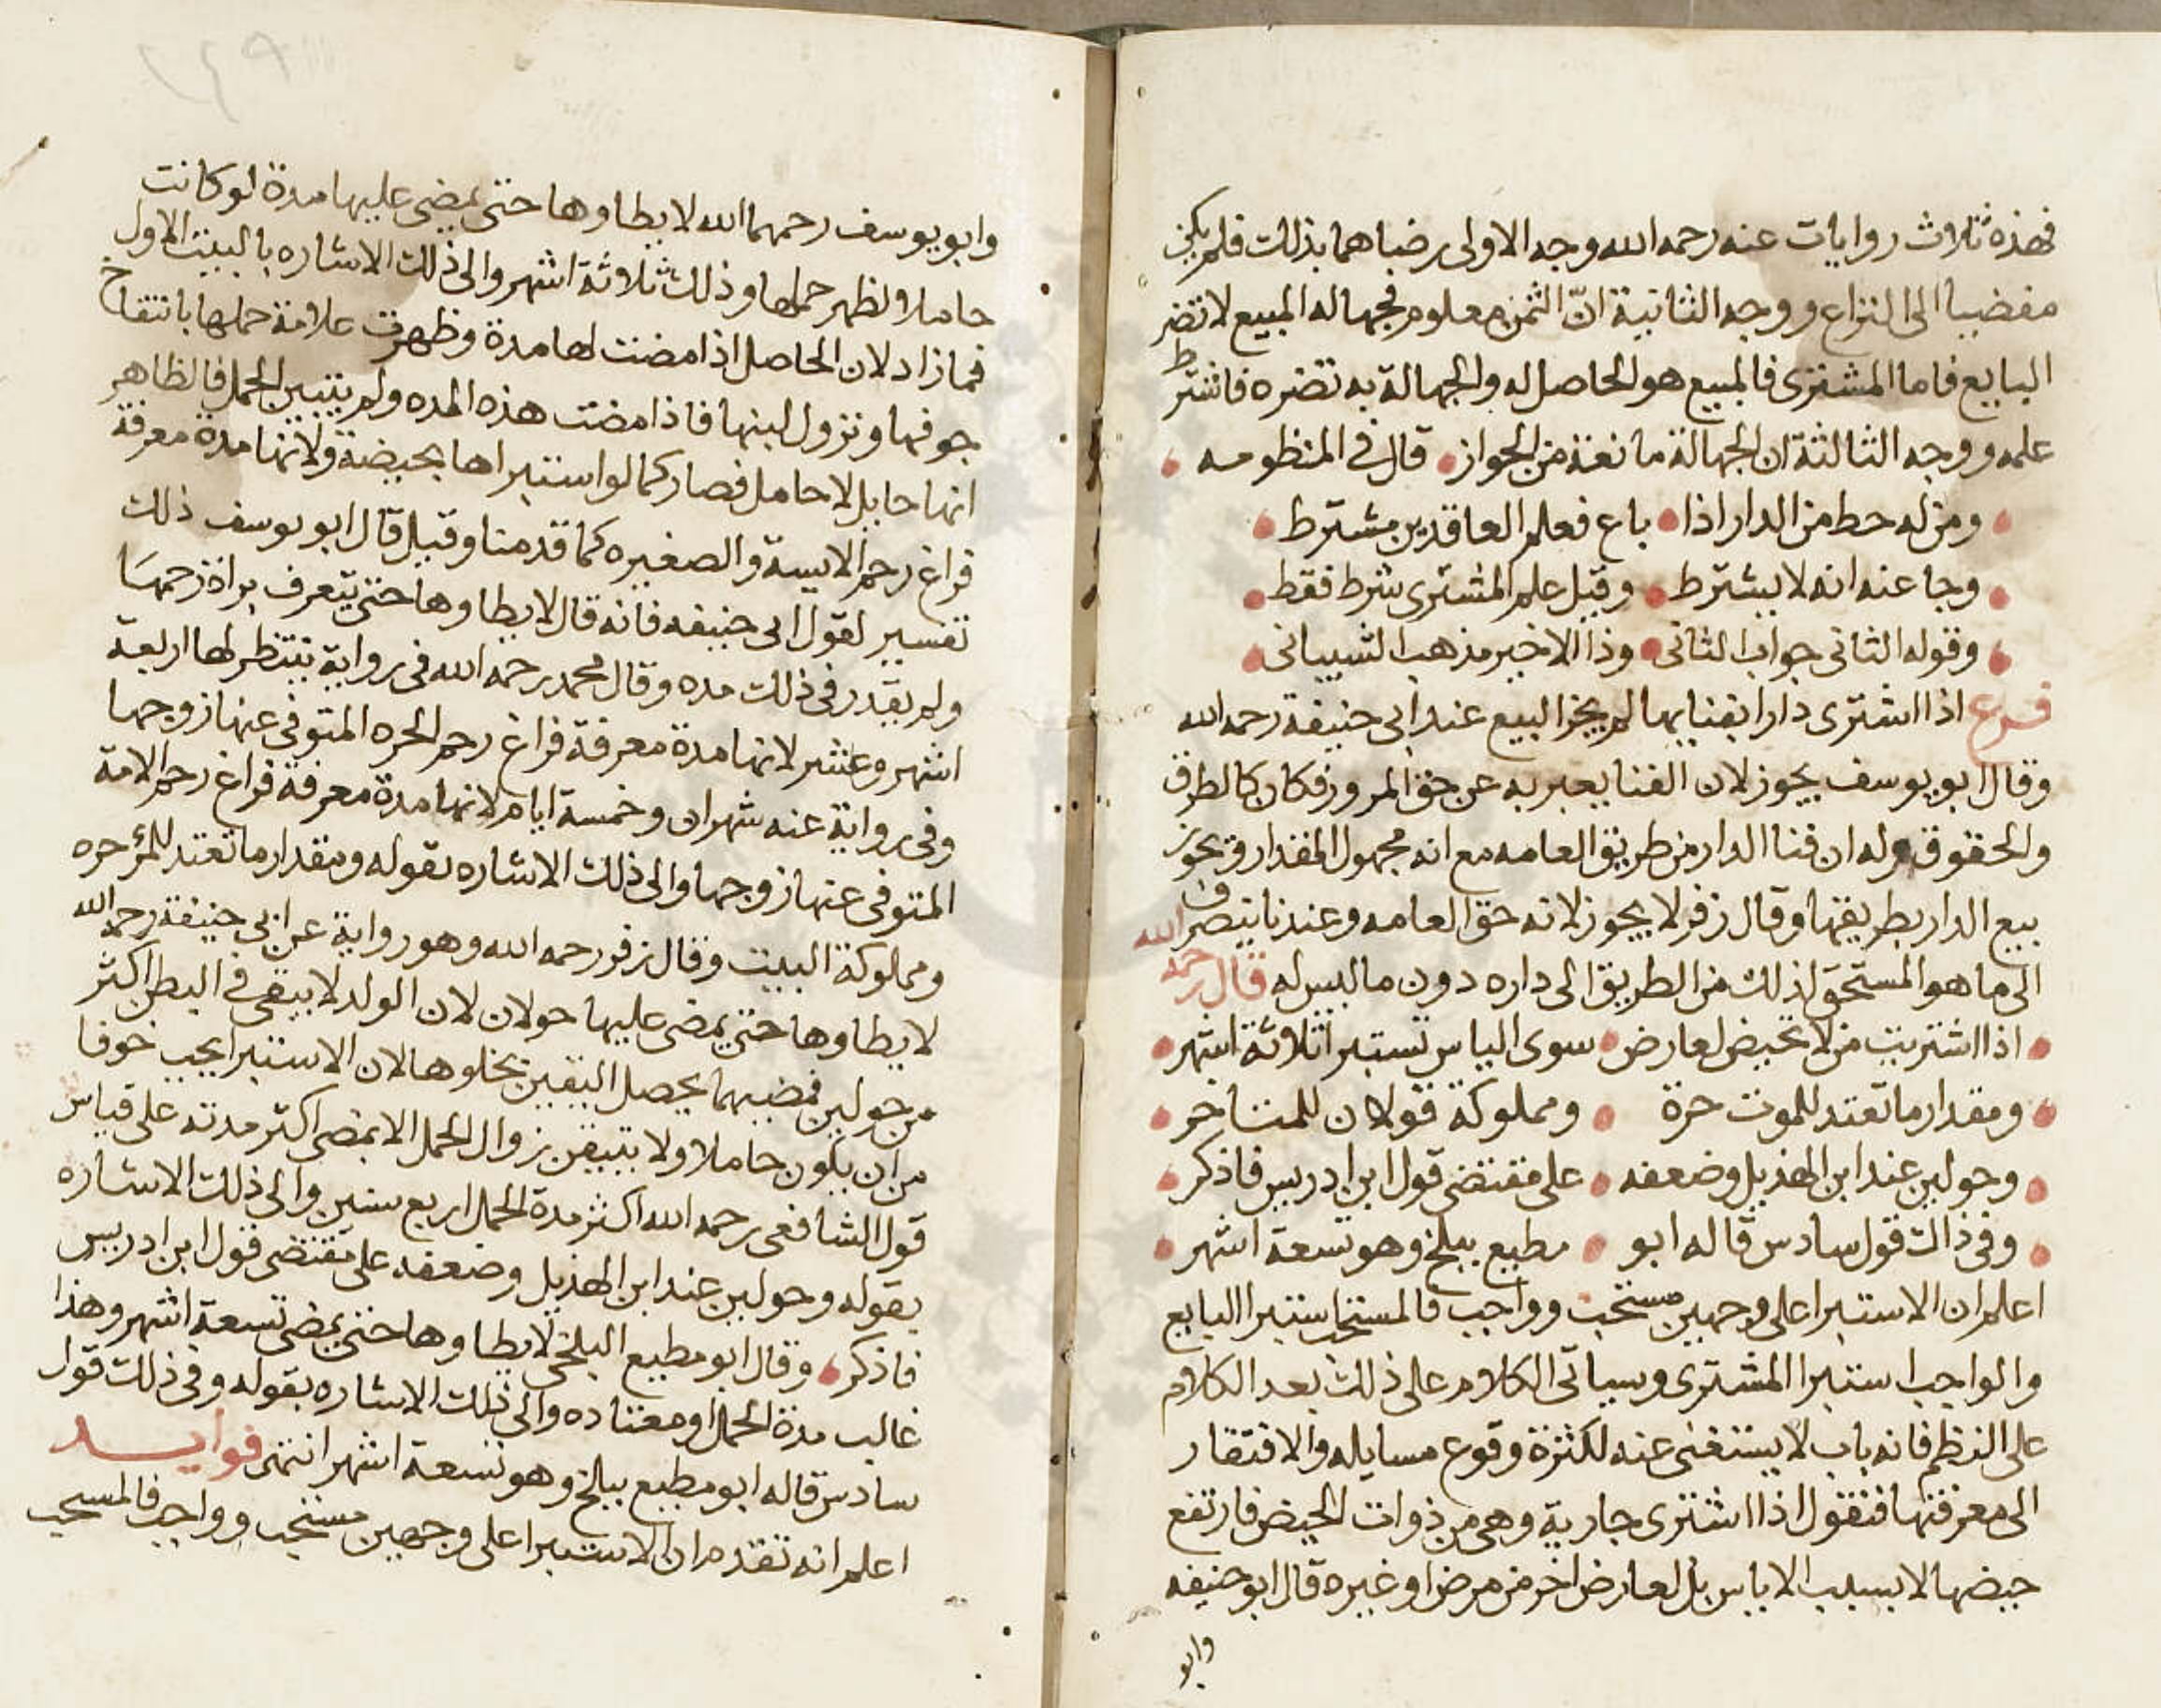 فهذه ثلاث روايات عنه رحمه الله وجه الاولى رضاهما بذلك فلم يكن
مفضيا الى النزاع ووجه الثانية انّ الثمن معلوم فجهاله المبيع لا تضر
البايع فاما المشترى فالمبيع هو الحاصل له والجهالة به تضره فاشترط
علمه ووجه الثالثة ان الجهالة مانعة من الجواز قال في المنظومه
ومن له حط من الدار اذا باع فعلم العاقدين مشترط
وجا عنه انه لا يشترط وقيل علم المشترى شرط فقط
وقوله الثانى جواب الثانى وذا الاخير مذهب الشيبانى
فرع اذا اشترى دارا بفنايها لم يجز البيع عند ابى حنيفة رحمه الله
وقال ابو يوسف يجوز لان الفنا يعبر به عن حق المرور فكان كالطرق
والحقوق وله ان فنا الدار من طريق العامه مع انه مجهول المقدار ويجوز
بيع الدار بطريقها وقال زفر لا يجوز لانه حق العامه وعندنا ينصرف
الى ما هو المستحق لذلك من الطريق الى داره دون ما ليس له قال رحمه الله
اذا اشتريت من لا تحيض لعارض سوى الياس تستبرا ثلاثة اشهر
ومقدار ما تعتد للموت حرة ومملوكة قولان للمتاخر
وحولين عند ابن الهذيل وضعفه على مقتضى قول ابن ادريس فاذكر
وفى ذاك قول سادس قاله ابو مطيع ببلخ وهو تسعة اشهر
اعلم ان الاستبرا على وجهين مستحب وواجب فالمستحب استبرا البايع
والواجب استبرا المشترى وسياتى الكلام على ذلك بعد الكلام
على النظم فانه باب لا يستغنى عنه لكثرة وقوع مسايله والافتقار
الى معرفتها فنقول اذا اشترى جارية وهى من ذوات الحيض فارتفع
حيضها لا بسبب الاياس بل لعارض اخر من مرض او غيره قال ابو حنيفه
وابو
٢٤٩
وابو يوسف رحمهما الله لا يطاوها حتى يمضى عليها مدة لو كانت
حاملا لظهر حملها وذلك ثلاثة اشهر والى ذلك الاشاره بالبيت الاول
فمازاد لان الحاصل اذا مضت لها مدة وظهرت علامة حملها بانتفاخ
جوفها ونزول لبنها فاذا مضت هذه المده ولم يتبين الحمل فالظاهر
انها حايل لا حامل فصار كما لو استبراها بحيضة ولانها مدة معرفة
فراغ رحم الايسة والصغيره كما قدمنا وقيل قال ابو يوسف ذلك
تفسير لقول ابى حنيفه فانه قال لا يطاوها حتى يتعرف براة رحمها
ولم يقدر فى ذلك مده وقال محمد رحمه الله فى رواية ينتظر لها اربعة
اشهر وعشر لانها مدة معرفة فراغ رحم الحره المتوفى عنها زوجها
وفى رواية عنه شهران وخمسة ايام لانها مدة معرفة فراغ رحم الامة
المتوفى عنها زوجها والى ذلك الاشاره بقوله ومقدار ما تعتد للموت حره
ومملوكة البيت وقال زفر رحمه الله وهو رواية عن ابى حنيفة رحمه الله
لا يطاوها حتى يمضى عليها حولان لان الولد لا يبقى فى البطن اكثر
من حولين فمضيهما يحصل اليقين بخلوها لان الاستبرا يجب خوفا
من ان يكون حاملا ولا يتيقن بزوال الحمل الا بمضى اكثر مدته على قياس
قول الشافعى رحمه الله اكثر مدة الحمل اربع سنين والى ذلك الاشاره
بقوله وحولين عند ابن الهذيل وضعفه على مقتضى قول ابن ادريس
فاذكر وقال ابو مطيع البلخى لا يطاوها حتى يمضى تسعة اشهر وهذا
غالب مدة الحمل او معتاده والى ذلك الاشاره بقوله وفى ذلك قول
سادس قاله ابو مطيع ببلخ وهو تسعة اشهر انتهى فوايد
اعلم انه تقدم ان الاستبرا على وجهين مستحب وواجب فالمستحب